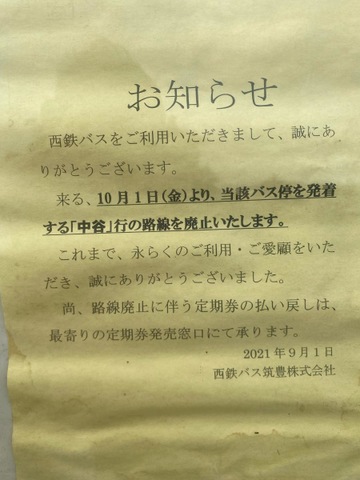 お知らせ
西鉄バスをご利用いただきまして、誠にあ
りがとうございます。
来る、10月1日(金)より、当該バス停を発着
する「中谷」行の路線を廃止いたします。
これまで、永らくのご利用・ご愛顧をいた
だき、誠にありがとうございました。
尚、路線廃止に伴う定期券の払い戻しは、
最寄りの定期券発売窓口にて承ります。
2021年9月1日
西鉄バス筑豊株式会社